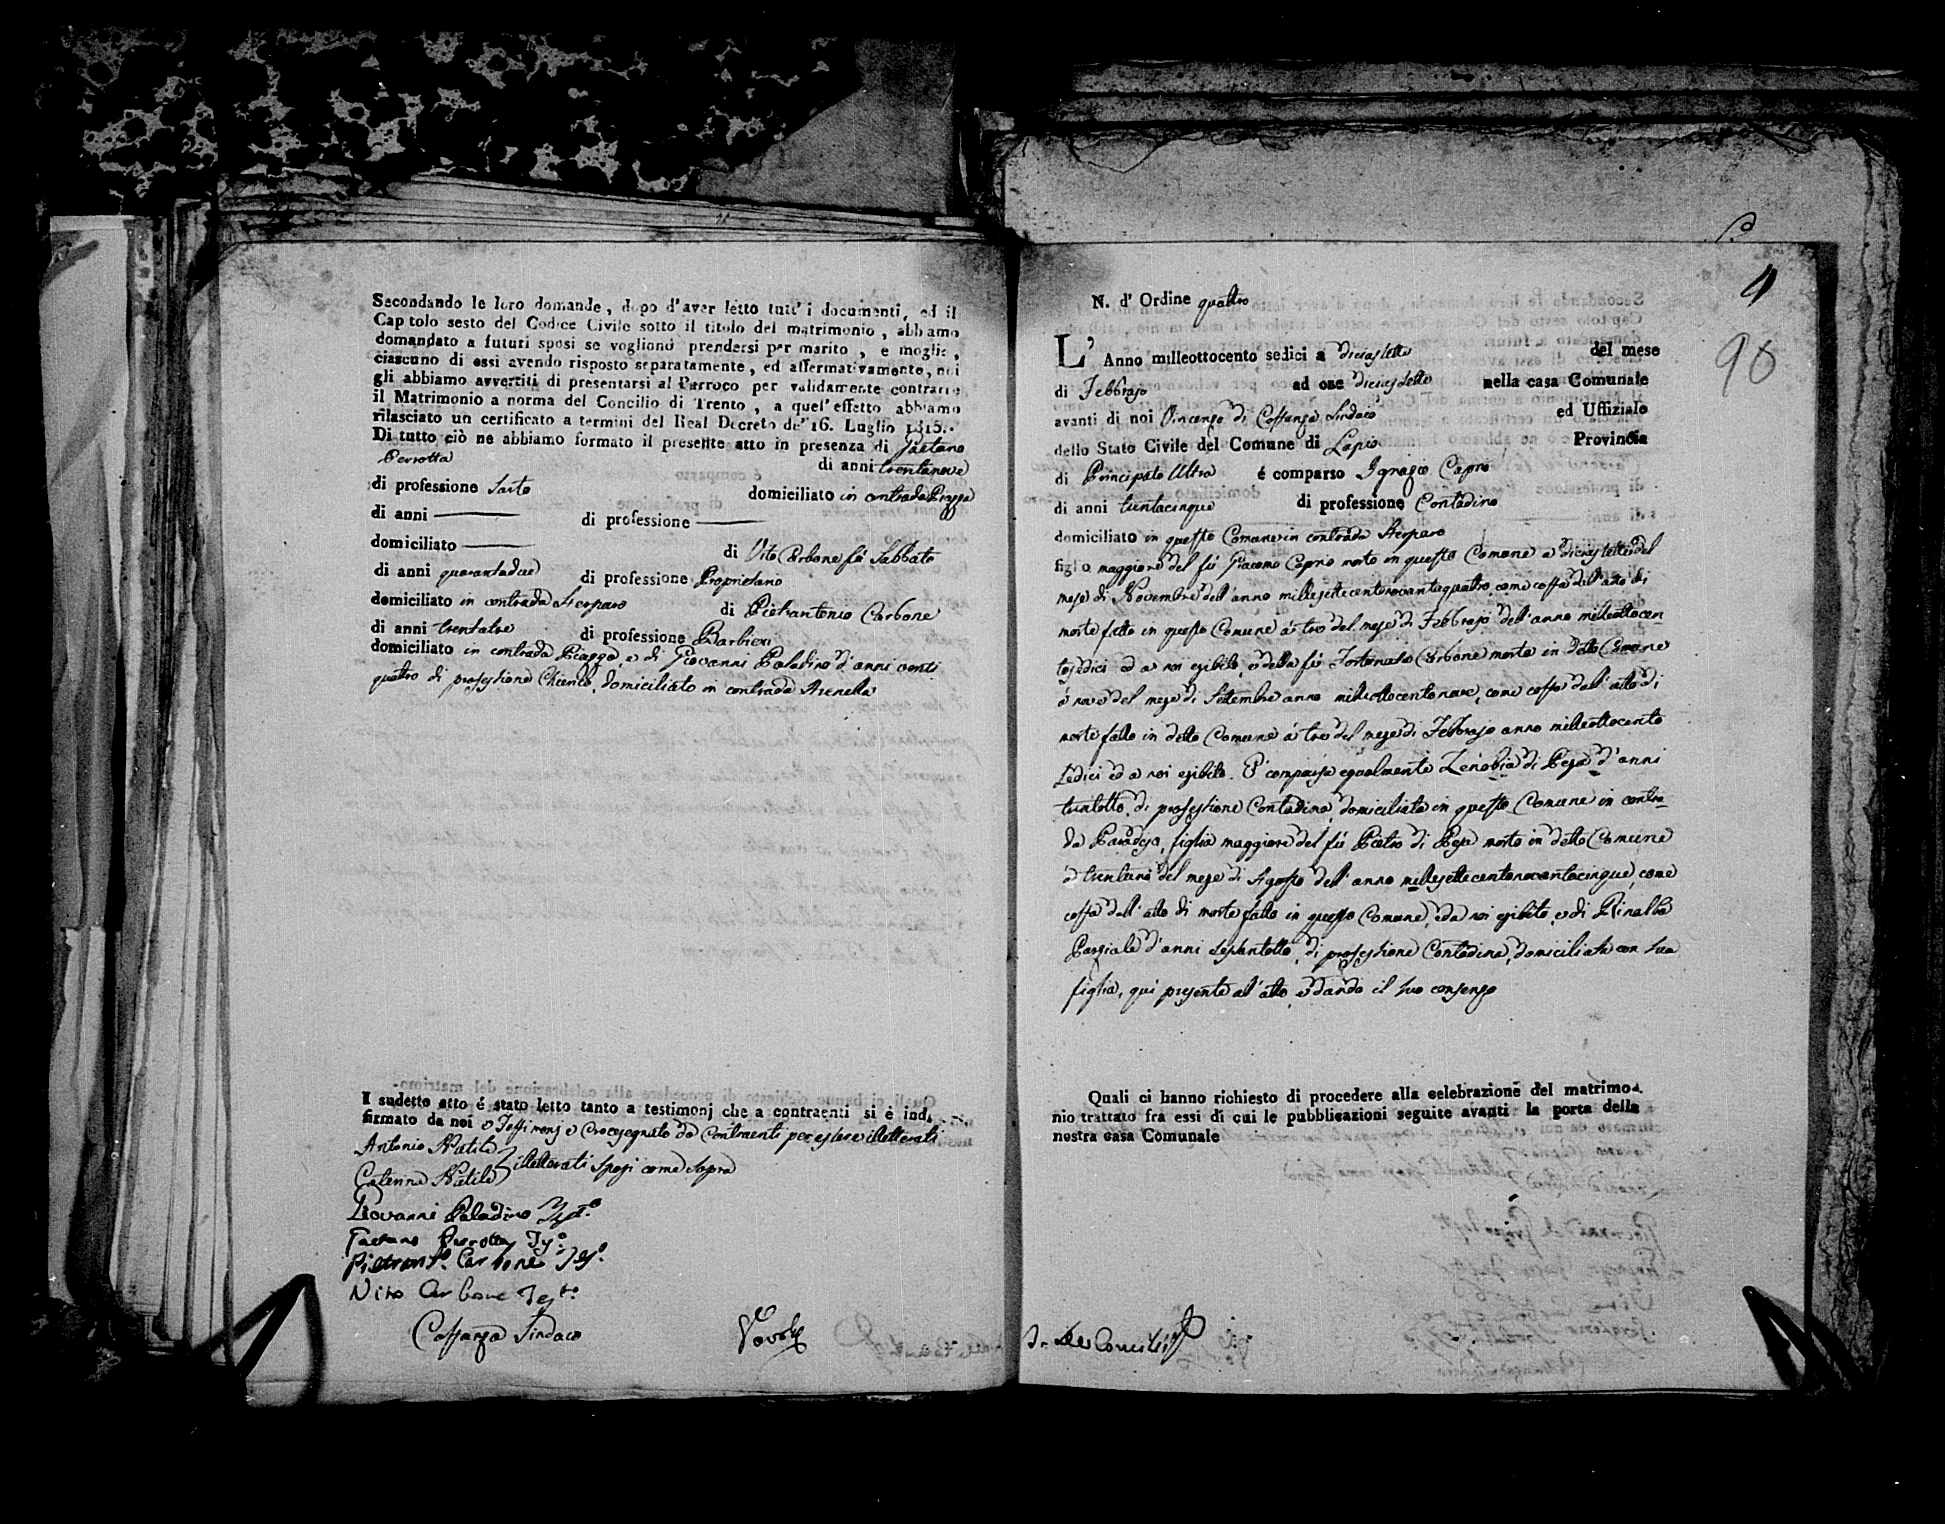 Secondando le loro domande, dopo d'aver letto tutt' i documenti, ed il
Cap tolo sesto del Codice Civile sotto il titolo del matrimonio, abbiamo
domandato a futuri sposi se vogliono prendersi per marito, e moglie,
ciascuno di essi avendo risposto separatamente, ed affermativamente, noi
gli abbiamo avvertiti di presentarsi al Parroco per validamente contrarre
il Matrimonio a norma del Concilio di Trento, a quel' effetto abbiamo
rilasciato un certificato a termini del Real Decreto de' 16. Luglio 1815.
Di tutto ciò ne abbiamo formato il presente atto in presenza di Gaetano
Perrotta di anni trentanove
di professione Sarto domiciliato in contrada Piazza
di anni —— di professione ——
domiciliato —— di Vito Carbone fù Sabbato
di anni quarantadue di professione Proprietario
domiciliato in contrada Sterparo di Pietrantonio Carbone
di anni trentatre di professione Barbiere
domiciliato in contrada Piazza, e di Giovanni Paladino d'anni venti
quattro di professione Chierico, domiciliato in contrada Arenella
I sudetto atto é stato letto tanto a testimonj che a contraenti si è ind,
firmato da noi e Testimonj e Crocesegnato da Contraenti per essere illetterati
Antonio Natile
Caterina Natile } illetterati Sposi come sopra
Giovanni Paladino Test.o
Gaetano Perrotta Ts.o
Pietrant.o Carbone Tes.o
Vito Carbone Test.o
Costanza Sindaco
N. d' Ordine quattro
4
98
L' Anno milleottocento sedici a diciasette del mese
di Febbrajo ad ore diciasette nella casa Comunale
avanti di noi Vincenzo di Costanza Sindaco ed Uffiziale
dello Stato Civile del Comune di Lapio Provincia
di Principato Ultra é comparso Ignazio Caprio
di anni trentacinque di professione Contadino
domiciliato in questo Comune in contrada Sterparo
figlio maggiore del fù Giacomo Caprio morto in questo Comune a diciasette del
mese di Novembre dell'anno millesettecentonovantaquattro, come costa dall'atto di
morte fatto in questo Comune á tre del mese di Febbrajo dell'anno milleottocen
tosedici ed a noi esibito, e della fù Fortunata Carbone morta in detto Comune
á nove del mese di Settembre anno milleottocentonove, come costa dall'atto di
morte fatto in detto Comune á tre del mese di Febbrajo anno milleottocento
sedici ed a noi esibito. E' comparsa egualmente Zenobia di Pesa d'anni
trentotto, di professione Contadina, domiciliata in questo Comune in contra-
da Paradiso, figlia maggiore del fù Pietro di Pesa morto in detto Comune
á trentuno del mese di Agosto dell'anno millesettecentonovantacinque, come
costa dall'atto di morte fatto in questo Comune, ed a noi esibito, e di Rinalba
Parziale d'anni sessantotto, di professione Contadina, domiciliata con sua
figlia, qui presente all'atto, e dando il suo consenso
Quali ci hanno richiesto di procedere alla celebrazione del matrimo-
nio trattato fra essi di cui le pubblicazioni seguite avanti la porta della
nostra casa Comunale